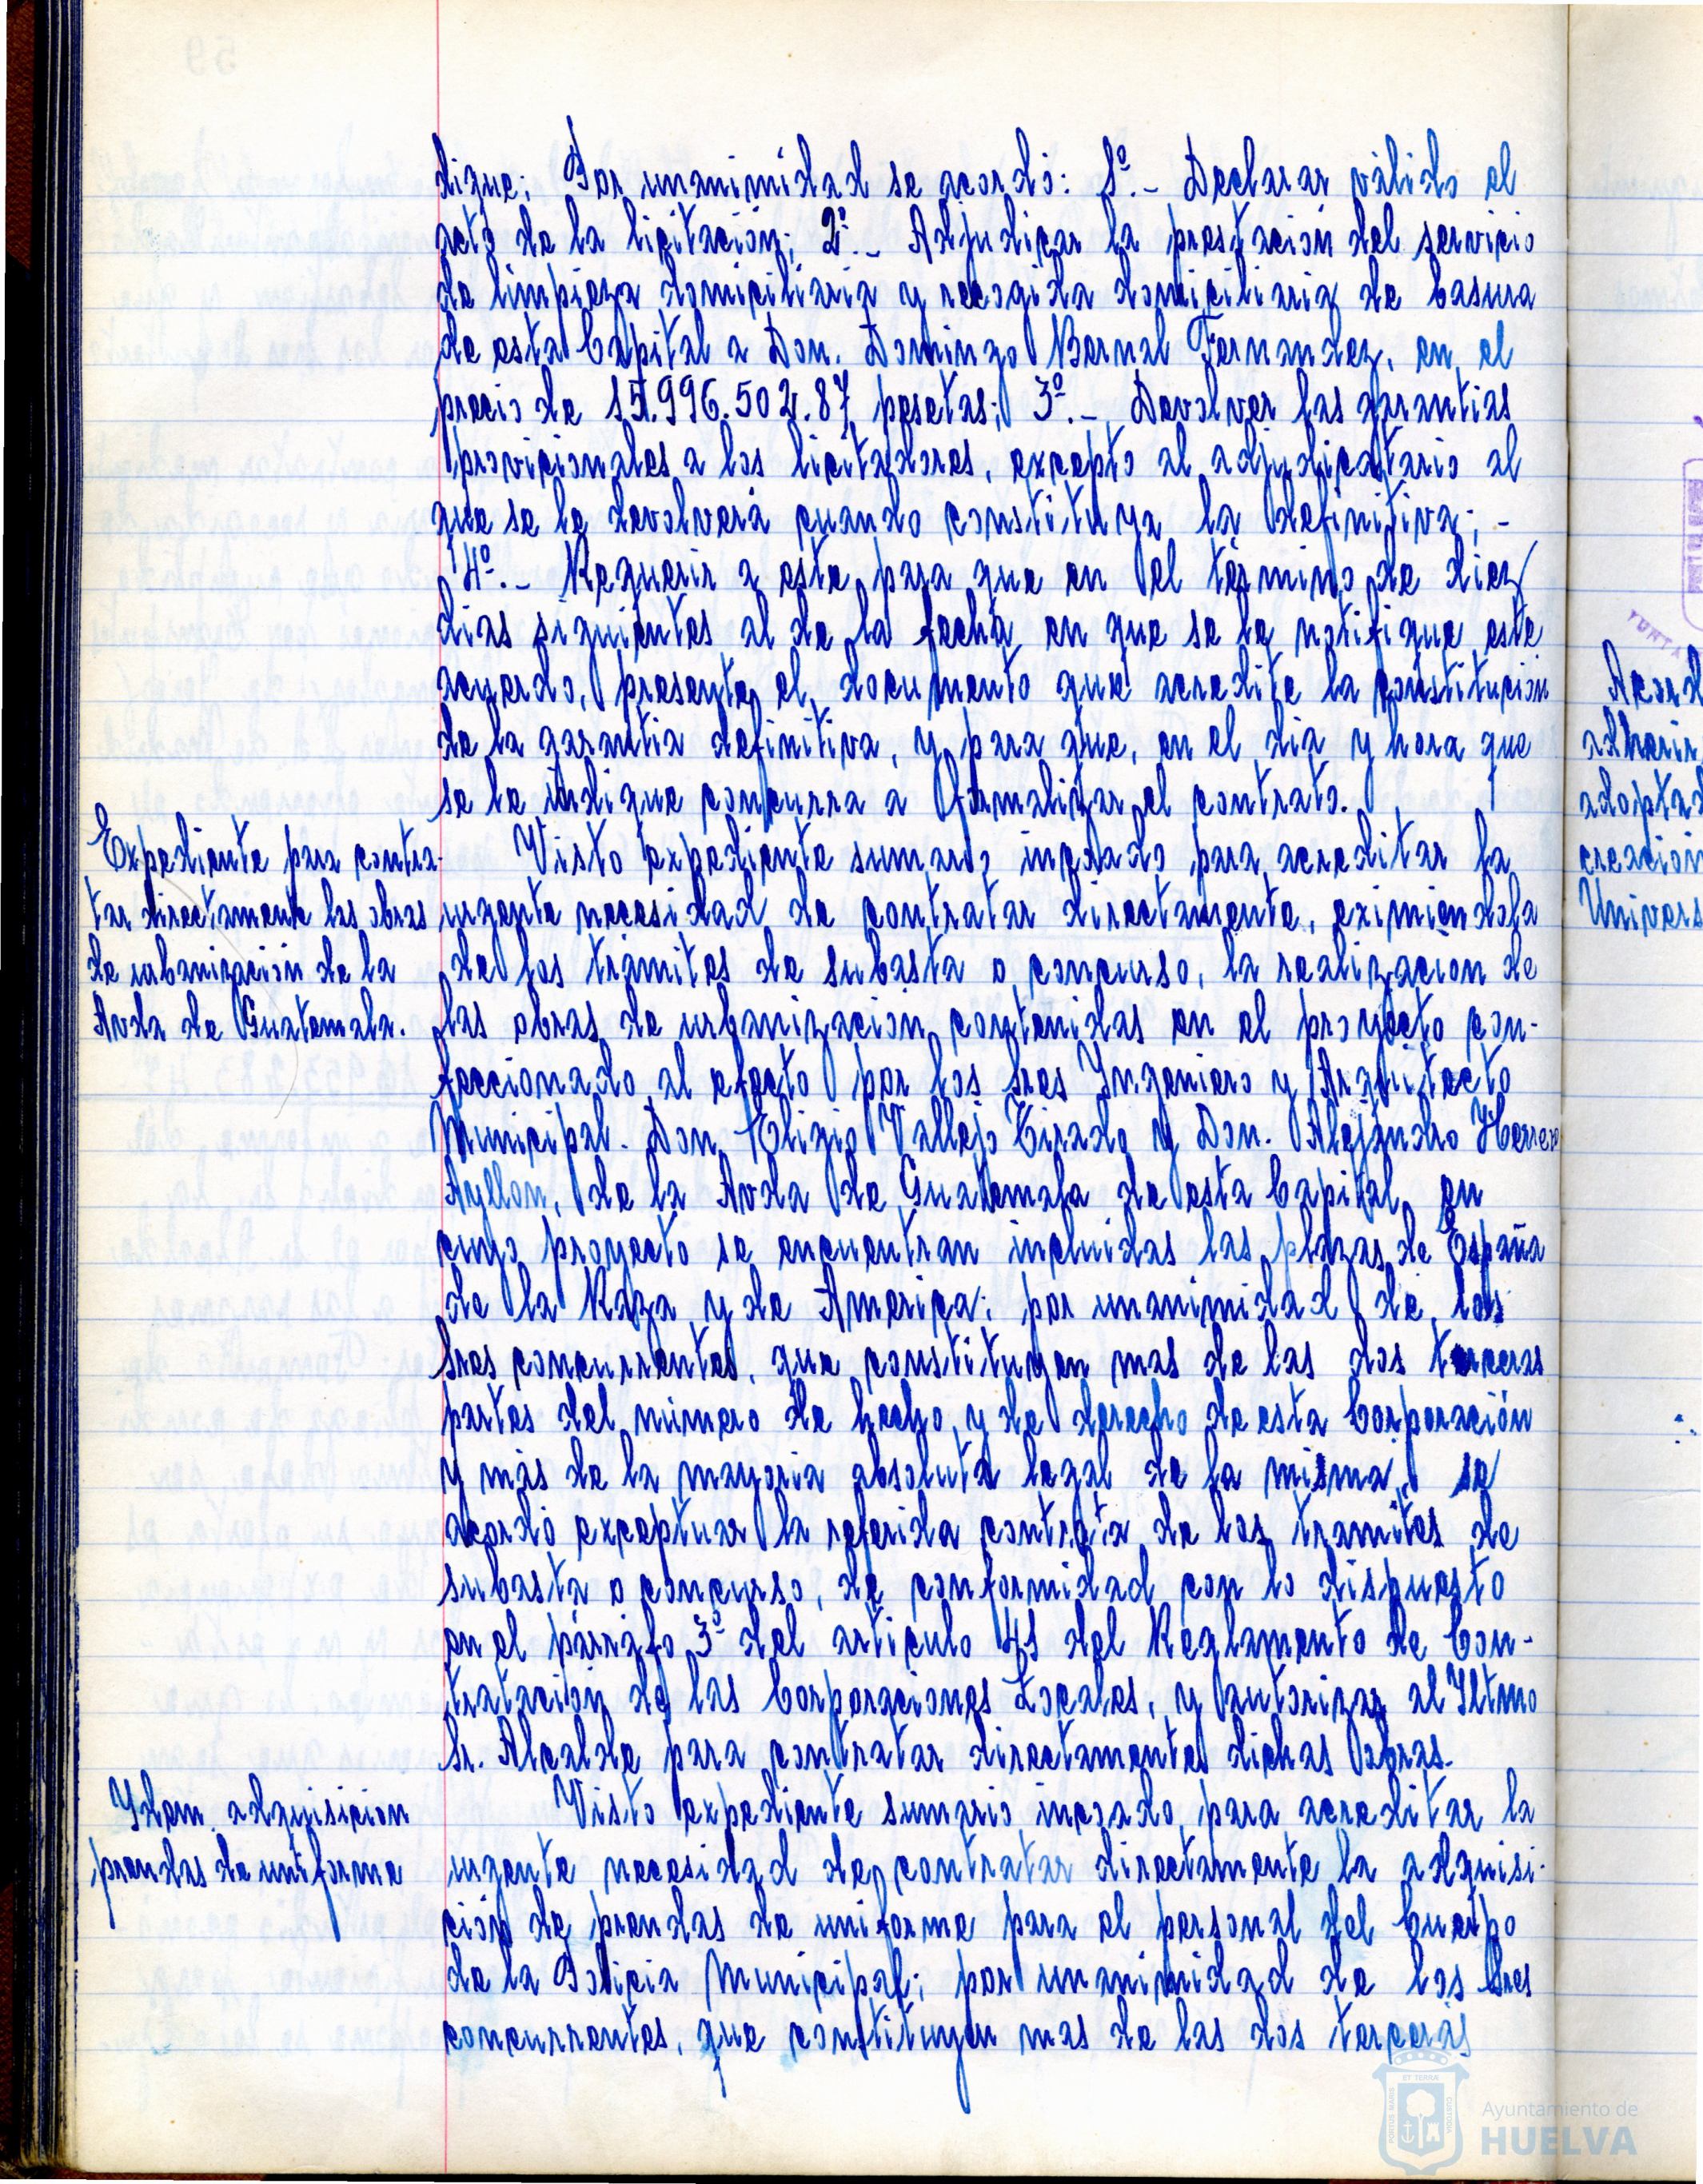 dique; Por unanimidad se acordó: 1º.- Declarar válido el
acto de la licitación; 2º.- Adjudicar la prestación del servicio
de limpieza domiciliaria y recogida domiciliaria de basura
de esta Capital a Don. Domingo Bernal Fernandez, en el
precio de 15.996.502.87 pesetas; 3º.- Devolver las garantias
provicionales a los licitadores, excepto al adjudicatario al
que se le devolverá cuando constituya la definitiva; -
4º.- Requerir a este para que en el término de diez
dias siguientes al de la fecha en que se le notifique este
acuerdo, presente el documento que acredite la constitución
de la garantia definitiva, y para que, en el dia y hora que
se le indique concurra a formalizar el contrato.
Expediente para contra-
tar directamente las obras
de urbanización de la
Avda de Guatemala.
Visto expediente sumario incoado para acreditar la
urgente necesidad de contratar directamente, eximiendola
de los trámites de subasta o concurso, la realizacion de
las obras de urbanización contenidas en el proyecto con-
feccionado al efecto por los Sres Yngeniero y Arquitecto
Municipal. Don Eligio Vallejo Tirado y Don. Alejandro Herrero
Ayllon, de la Avda de Guatemala de esta Capital en
cuyo proyecto se encuentran incluidas las plazas de España
de la Raza y de America; por unanimidad de los
Sres concurrentes, que constituyen mas de las dos terceras
partes del número de hecho y de derecho de esta Corporación
y más de la mayoria absoluta legal de la misma, se
acordó exceptuar la referida contrata de los tramites de
subasta o concurso, de conformidad con lo dispuesto
en el párrafo 3º del articulo 41 del Reglamento de Con-
tratación de las Corporaciones Locales, y autorizar al Yltmo
Sr. Alcalde para contratar directamente dichas obras.
Ydem. adquisicion
prendas de uniforme
Visto expediente sumario incoado para acreditar la
urgente necesidad de contratar directamente la adquisi-
ción de prendas de uniforme para el personal del Cuerpo
de la Policia Municipal; por unanimidad de los Sres
concurrentes, que constituyen mas de las dos terceras
Acord
adherir
adoptad
creación
Univers
Ayuntamiento de
HUELVA